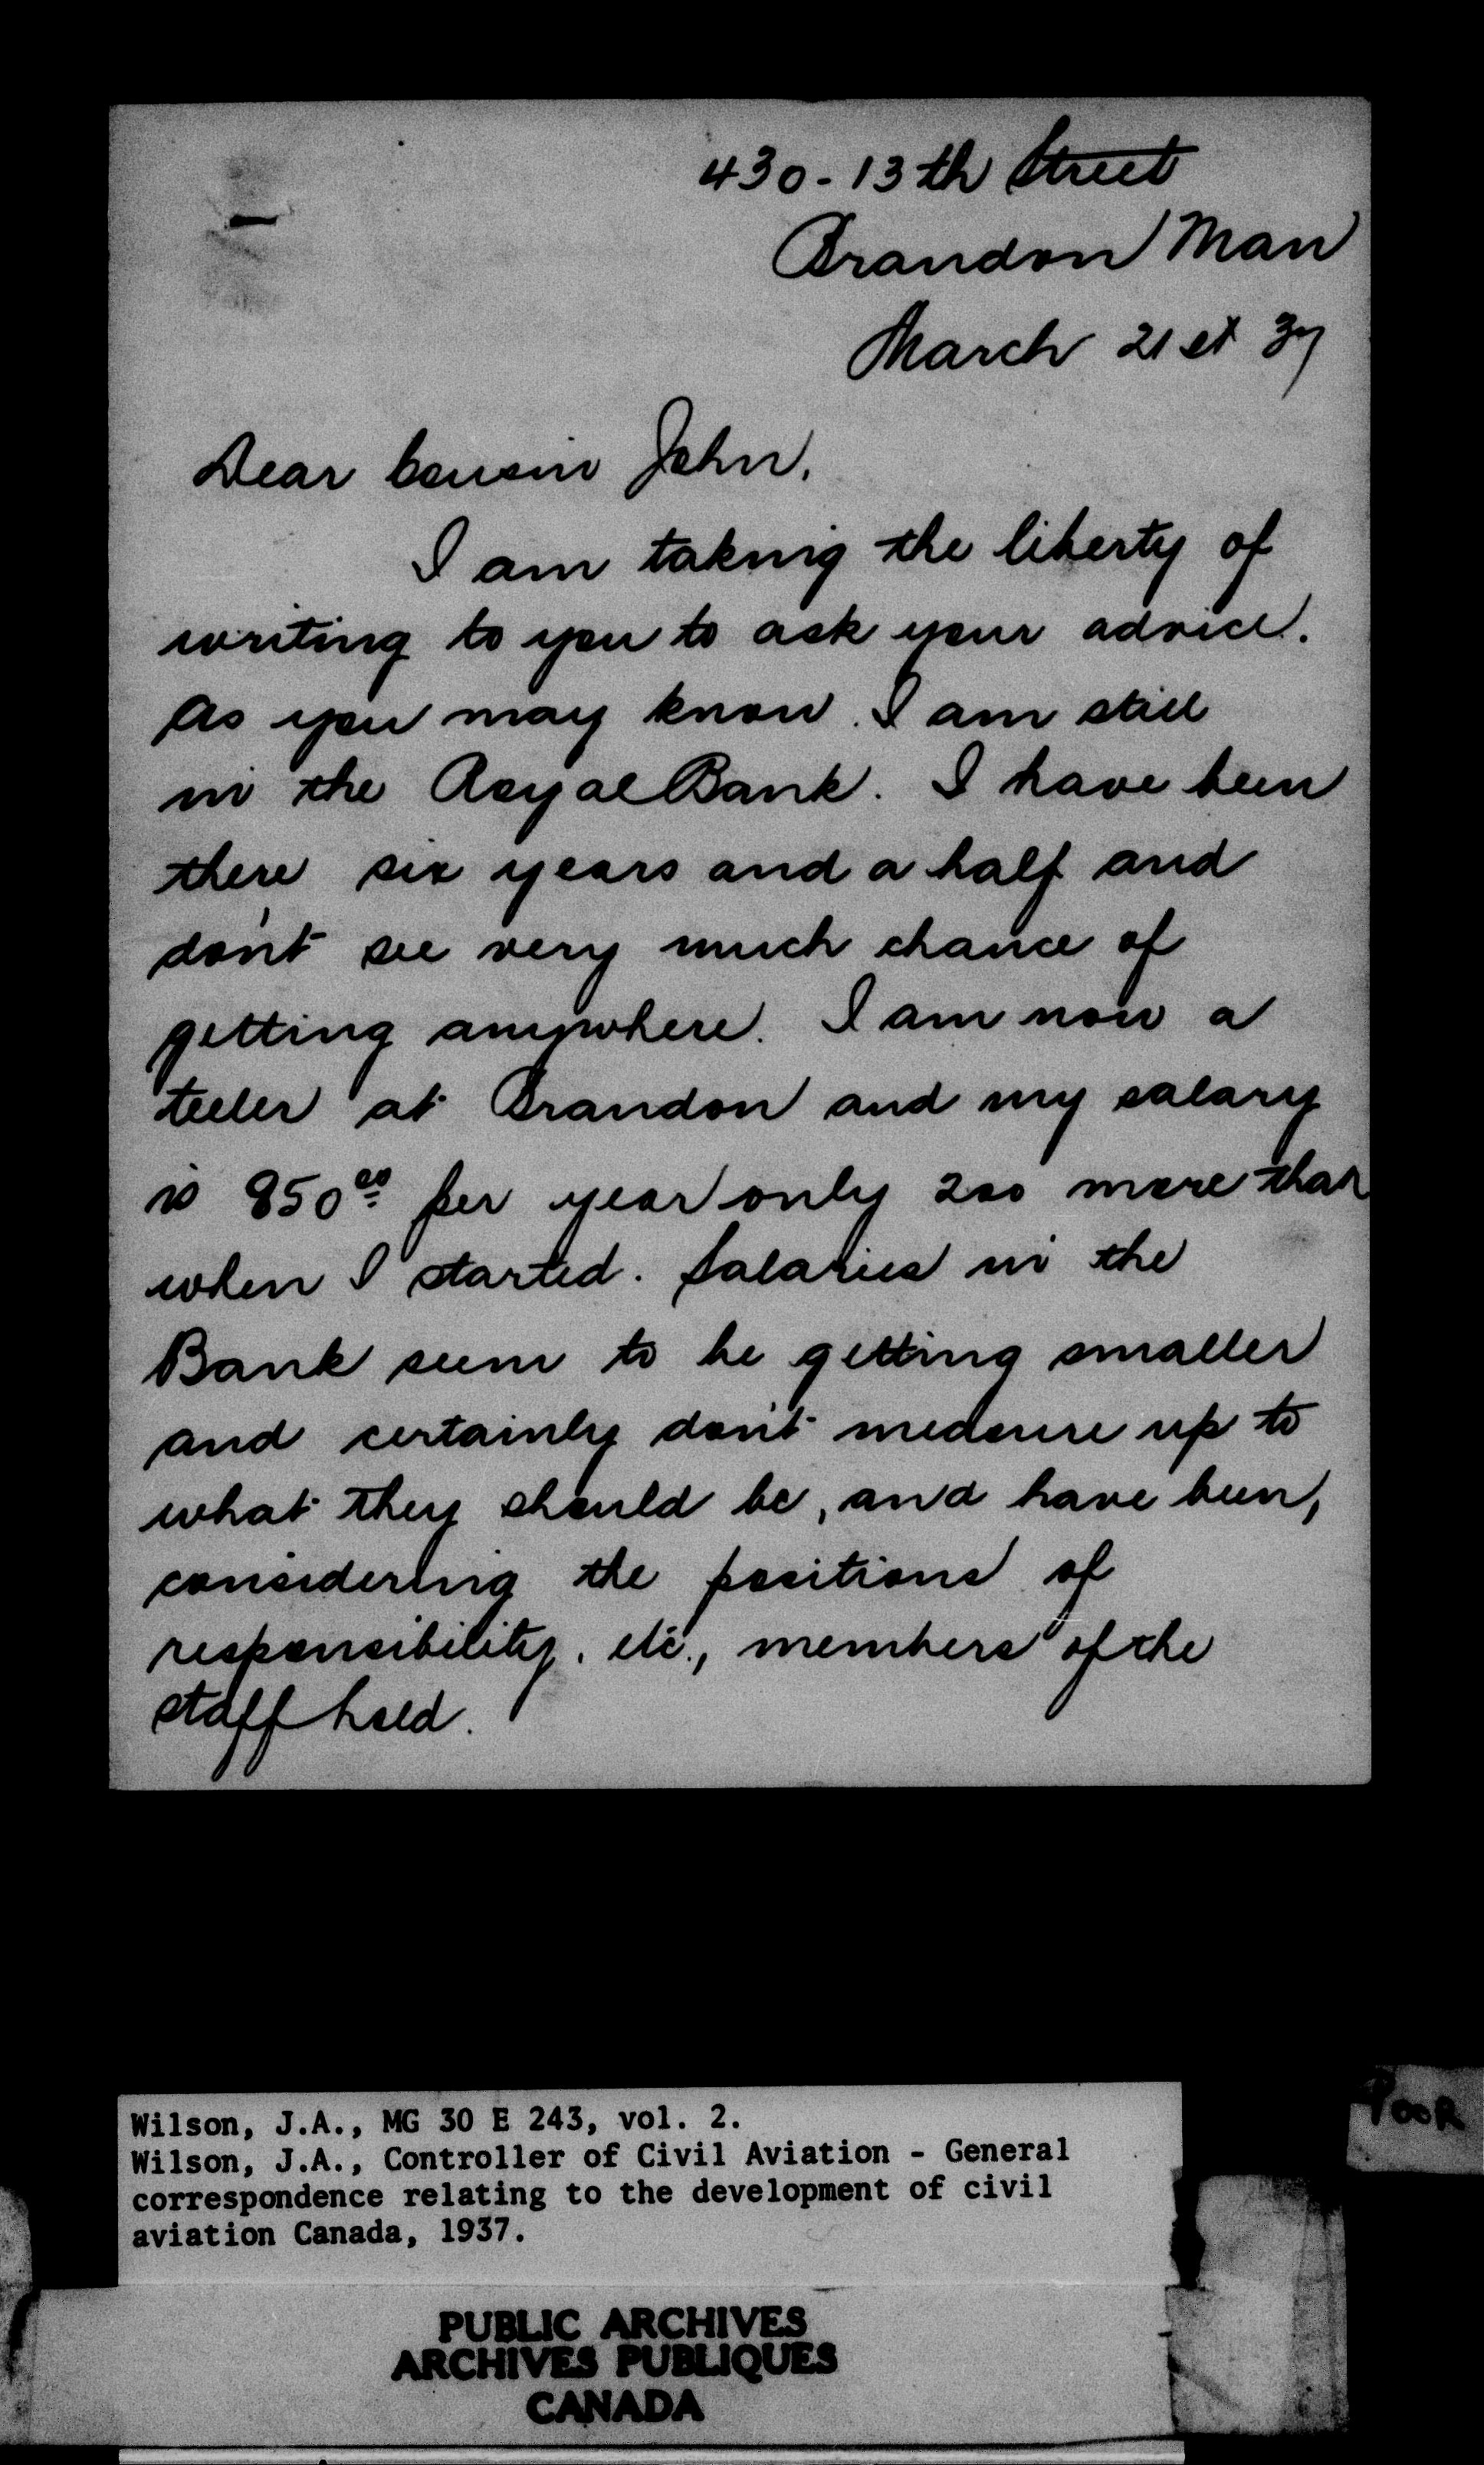 430-13th Street
Brandon Man
March 21st 37
Dear Cousin John,
I am taking the liberty of
writing to you to ask your advice.
As you may know. I am still
in the Royal Bank. I have been
there six years and a half and
don't see very much chance of
getting anywhere. I am now a
teller at Brandon and my salary
is 850⁰⁰ per year only 200 more than
when I started. Salaries in the
Bank seem to be getting smaller
and certainly don't measure up to
what they should be, and have been,
considering the positions of
responsibility. etc., members of the
staff hold.
POOR
Wilson, J.A., MG 30 E 243, vol. 2.
Wilson, J.A., Controller of Civil Aviation - General
correspondence relating to the development of civil
aviation Canada, 1937.
PUBLIC ARCHIVES
ARCHIVES PUBLIQUES
CANADA